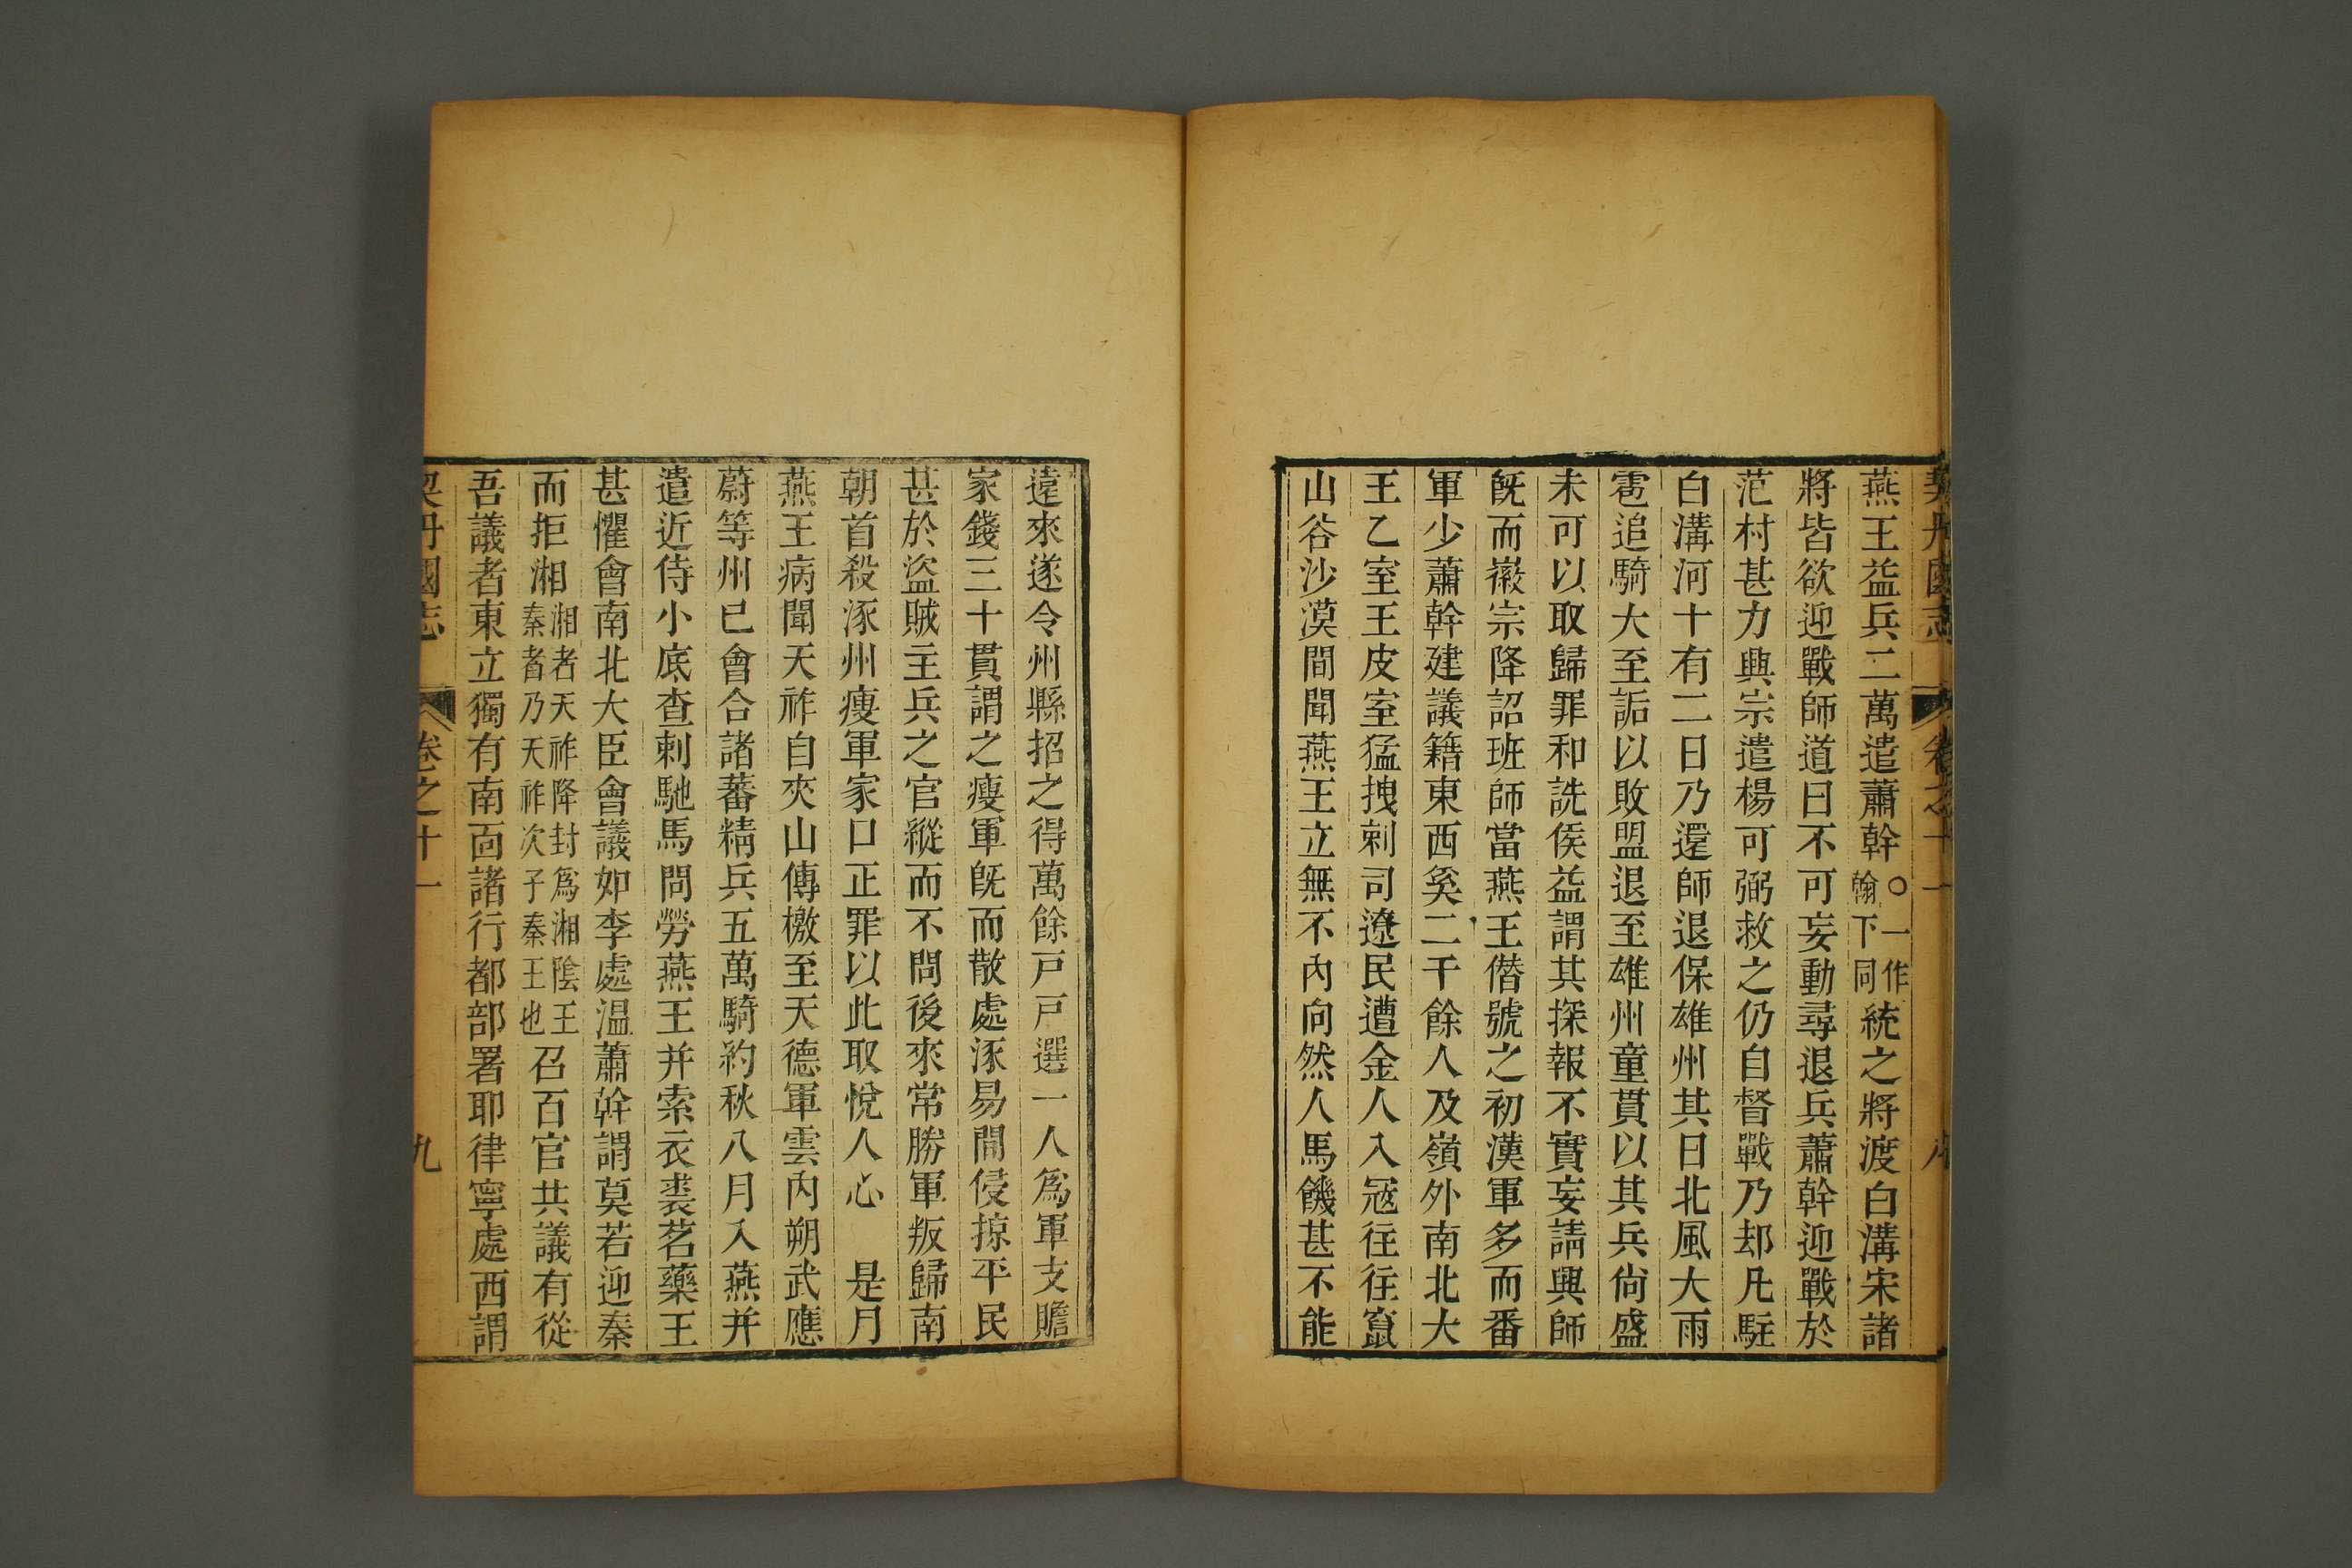 契丹國志 卷之十一
燕王益兵二萬遣蕭幹○一作翰下同統之將渡白溝宋諸
將皆欲迎戰師道曰不可妄動尋退兵蕭幹迎戰於
范村甚力興宗遣楊可弼救之仍自督戰乃却凡駐
白溝河十有二日乃還師退保雄州其日北風大雨
雹追騎大至詬以敗盟退至雄州童貫以其兵尙盛
未可以取歸罪和詵侯益謂其探報不實妄請興師
旣而徽宗降詔班師當燕王僣號之初漢軍多而番
軍少蕭幹建議籍東西奚二千餘人及嶺外南北大
王乙室王皮室猛拽剌司遼民遭金人入冦往往竄
山谷沙漠間聞燕王立無不內向然人馬饑甚不能
遠來遂令州縣招之得萬餘戸戸選一人爲軍支贍
家錢三十貫謂之瘦軍旣而散處涿易間侵掠平民
甚於盜賊主兵之官縱而不問後來常勝軍叛歸南
朝首殺涿州瘦軍家口正罪以此取悅人心　是月
燕王病聞天祚自夾山傳檄至天德軍雲內朔武應
蔚等州已會合諸蕃精兵五萬騎約秋八月入燕并
遣近侍小底查剌馳馬問勞燕王并索衣裘茗藥王
甚懼會南北大臣會議如李處温蕭幹謂莫若迎秦
而拒湘湘者天祚降封爲湘陰王秦者乃天祚次子秦王也召百官共議有從
吾議者東立獨有南面諸行都部署耶律寧處西謂
契丹國志 卷之十一 九